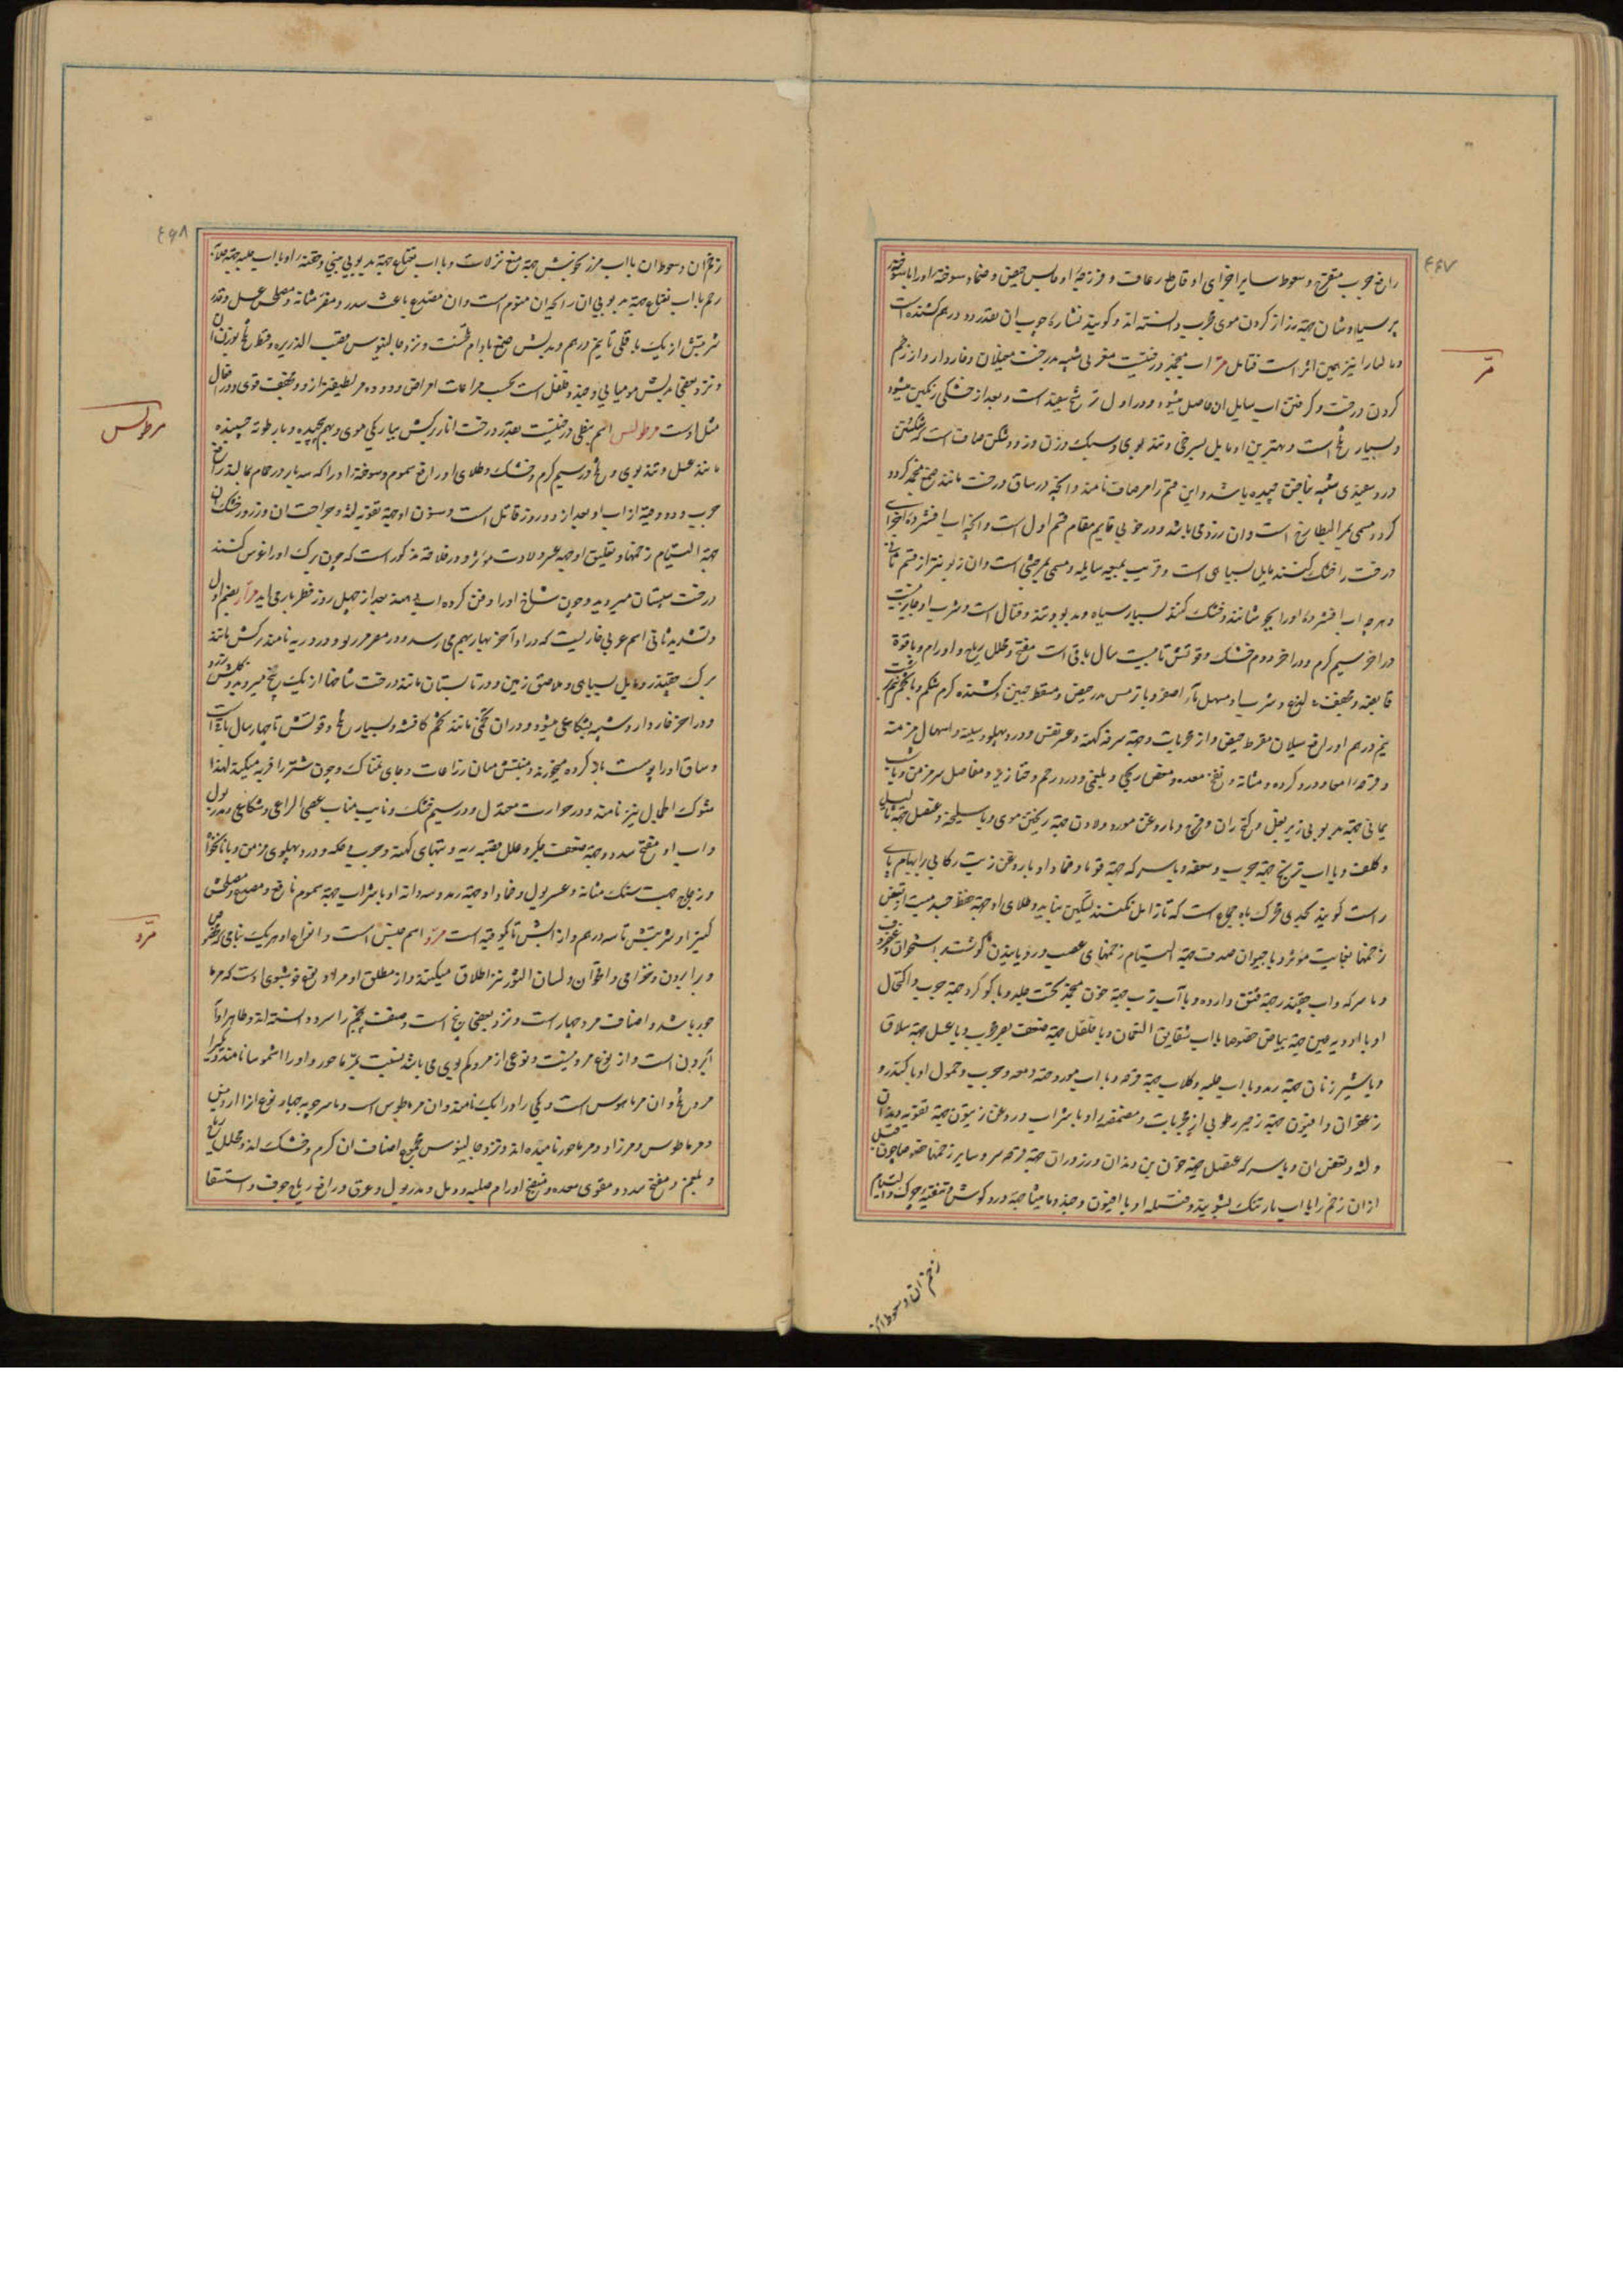 ۴۶۷
رافع جرب متقرح و سعوط سایر اجزای او قاطع رعاف و فرزجهٔ او حابس حیض و ضماد سوخته او را با سوخته
پر سیاوشان جهة دراز کردن موی مجرب دانسته اند و گویند نشارهٔ چوب ان بقدر ده درهم کشنده است
و مالها را نیز همین اثر است قتامل مرّ اب منجمد درختیست مغربی شبیه بدرخت مغیلان و خاردار و از زخم
مرّ
کردن درخت و گرفتن اب سایل ان حاصل میشود و در اول ترشح سفید است و بعد از خشکی رنگین میشود
و بسیار تلخ است و بهترین او مایل بسرخی و تند بوی و سبک وزن و زود شکن صاف است که شکستن
در و سفیدی شبیه بناخن چیده باشد و این قسم را مر صاف نامند و انچه در ساق درخت مانند صمغ منجمد گردد
گردد مسمی بمر البطارخ است و ان زرد می باشد و در خوبی قایم مقام قسم اول است و انچه اب افشردهٔ اجزای
درخت را خشک کنند مایل بسیاهی است و قریب بمیعه سایله و مسمی بمر حبشی است و ان زبون تر از قسم ثانی
و هرچه اب افشردهٔ او را بجوشانند و خشک کنند بسیار سیاه و بدبو و تند و قتال است و شرب او جایز نیست
در اخر سیم گرم و در اخر دوم خشک و قوتش تا بیست سال باقی است مفتح و محلل ریاح و اورام و با قوة
قابضه و مجفف بلیغ و شرب او مسهل ماء اصفر و با ترمس مدر حیض و مسقط جنین و کشنده کرم شکم و با تخم مرغ نیم برشت
نیم درهم او رافع سیلان مفرط حیض و از مجربات و جهة سرفه کهنه و عسر نفس و درد پهلو و سینه و اسهال مزمنه
و قرحهٔ امعا و درد کرده و مثانه و نفخ معده و مغص ریحی و بلغمی و درد رحم و خنازیر و مفاصل سرد مزمن و با شب
یمانی جهة بدبویی زیر بغل و کنج ران و فرج و با روغن مورد و لادن جهة ریختن موی و با سلیخه و عسل جهة ثالیل
و کلف و با اب ترنج جهة جرب و سعفه و با سرکه جهة قوبا و ضماد او با روغن زیت رکابی را بهام پای
راست گویند بحدی محرک باه جماع است که تا زایل نکنند تسکین نیابد و طلای او جهة حفظ جسد میت از تعفن
زخمها بغایت مؤثر و با حیوان صدف جهة التیام زخمهای عصب و رویانیدن گوشت بر استخوان و غضروف
و با سرکه و اب چغندر جهة فتق وارده و با آب ترب جهة خون منجمد تحت جلد و با گوگرد جهة جرب و اکتحال
او با ادویه عین جهة بیاض خصوصا با اب شقایق النعمان و با فلفل جهة ضعف بصر مجرب و با عسل جهة سلاق
و با شیر زنان جهة رمد و با اب حلبه و کلاب جهة قرحه و با اب مورد جهة دمعه و مجرب و حمول او با کندر و
زعفران و افیون جهة زحیر رطوبی از مجربات و مضمضهٔ او با شراب و روغن زیتون جهة تقویه دندان
و لثه و تعفن ان و با سرکه عنصل جهة خون بن دندان و ذرور ان جهة قرحه سر و سایر زخمها خصوصا چون قبل
از ان زخم را با اب بارتنک بشویند و فتیله او با افیون و جند و مامیثا جهة درد گوش و تنقیه چرک و التیام
زخم ان و سعوط ان
۴۶۸
زخم ان و سعوط ان با اب مرزنجوش جهة منع نزلات و با اب نعناع جهة بدبویی بینی و حقنه او با اب حلبه جهة صلابة
رحم با اب نعناع جهة بدبویی ان رایحه ان منوم است و ان مصدع باعث سدر و مضر مثانه و مصلحش عسل و قدر
شربتش از یک باقلی تا نیم درهم و بدلش صمغ بادام تلخست و نزد جالینوس قصب الذریره و قسط تلخ بوزن ان
و نزد بعضی بدلش مومیایی و جند و فلفل است بحسب مراعات امراض و دوده مر لطیفتر از و و مجفف قوی و در افعال
مثل اوست مرطولس اسم نبطی درختیست بقدر درخت انار برگش بباریکی موی و بهم پیچیده و با رطوبه چسپنده
مرطولس
مانند عسل و تند بوی و تلخ در سیم گرم و خشک و طلای او رافع سموم و سوخته او را که سه بار در حمام بمالند رافع
جرب و دو وقیه از اب او بعد از دو روز قاتل است و سنون او جهة تقویه لثه و جراحت ان و ذرور خشک ان
جهة التیام زخمها و تعلیق او جهة عسر ولادت مؤثر و در فلاحة مذکور است که چون برگ او را غرس کنند
درخت سپستان میروید و چون شاخ او را دفن کرده اب بدهند بعد از چهل روز فطر بار می اید مرّار بضم اول
و تشدید ثانی اسم عربی خاریست که در اواخر بهار بهم می رسد و در مصر مریر و در دریه نامند برگش مانند
برگ چغندر و مایل بسیاهی و ملاصق زمین و در تابستان مانند درخت شاخها از یک بیخ میروید و گلش زرد
و در اخر خاردار و شبیه بشکاعی میشود و در ان تخمی مانند تخم کافشه و بسیار تلخ و قوتش تا چهار سال باقیست
و ساق او را پوست باز کرده میخورند و منبتش میان زراعات و جای نمناک و چون شتر را فربه میکند لهذا
شوک الجمل نیز نامند و در حرارت معتدل و در سیم خشک و نایب مناب عصی الراعی و شکاعی و مدر بول
و اب او مفتح سدد و جهة ضعف جگر و علل قصبه ریه و تبهای کهنه و جرب و حکه و درد پهلوی مزمن و با نانخواه
و زجاج جهت سنگ مثانه و عسر بول و ضماد او جهة رمد و سه دانه او با شراب جهة سموم نافع و مصدع و مصلحش
کثیرا و شربتش تا سه درهم و از ابش تا یکوقیه است مردّ اسم جنس است و انواع او هر یک بنامی مخصوص
مرّد
و برابرون و خزامی و اقحوان و لسان الثور نیز اطلاق میکنند و از مطلق او مراد نوع خوشبوی اوست که مرما
حور باشد و اصناف مرو چهار است و نزد بعضی پنج است و صنف پنجم را سرد دانسته اند و ظاهرا
مرو تلخ و ان مرماهوس است و یکی را ورایک نامند و ان مرماطوس است
و مرماطوس و مرزاد و مرماحور نامیده اند و نزد جالینوس مجموع اصناف ان گرم و خشک اند و محلل ریاح
و بلغم و مفتح سدد و مقوی معده و منضج اورام صلبه و دمل و مدر بول و عرق و رافع ریاح جوف و استسقا